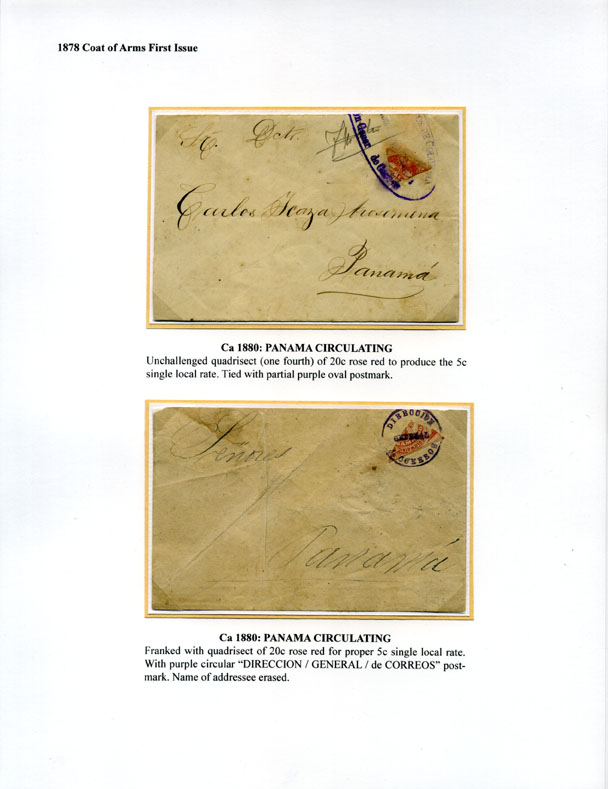 1878 Coat of Arms First Issue
Sr. Dctr.
Carlos Icaza Arosemena
Panamá
Ca 1880: PANAMA CIRCULATING
Unchallenged quadrisect (one fourth) of 20c rose red to produce the 5c
single local rate. Tied with partial purple oval postmark.
DIRECCION
GENERAL
de CORREOS
Señores
Panamá
Ca 1880: PANAMA CIRCULATING
Franked with quadrisect of 20c rose red for proper 5c single local rate.
With purple circular “DIRECCION / GENERAL / de CORREOS” post-
mark. Name of addressee erased.